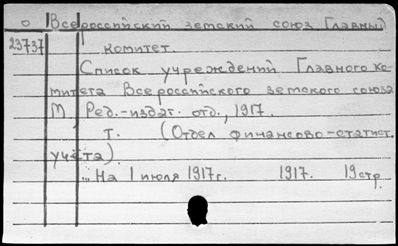 о Всероссийский земский союз Главный
23737 комитет.
Список учреждений Главного ко-
митета Всероссийского земского союза
М, Ред.-издат. отд., 1917.
т. (Отдел финансово-статист.
учёта).
... На 1 июля 1917г. 1917. 19 стр.